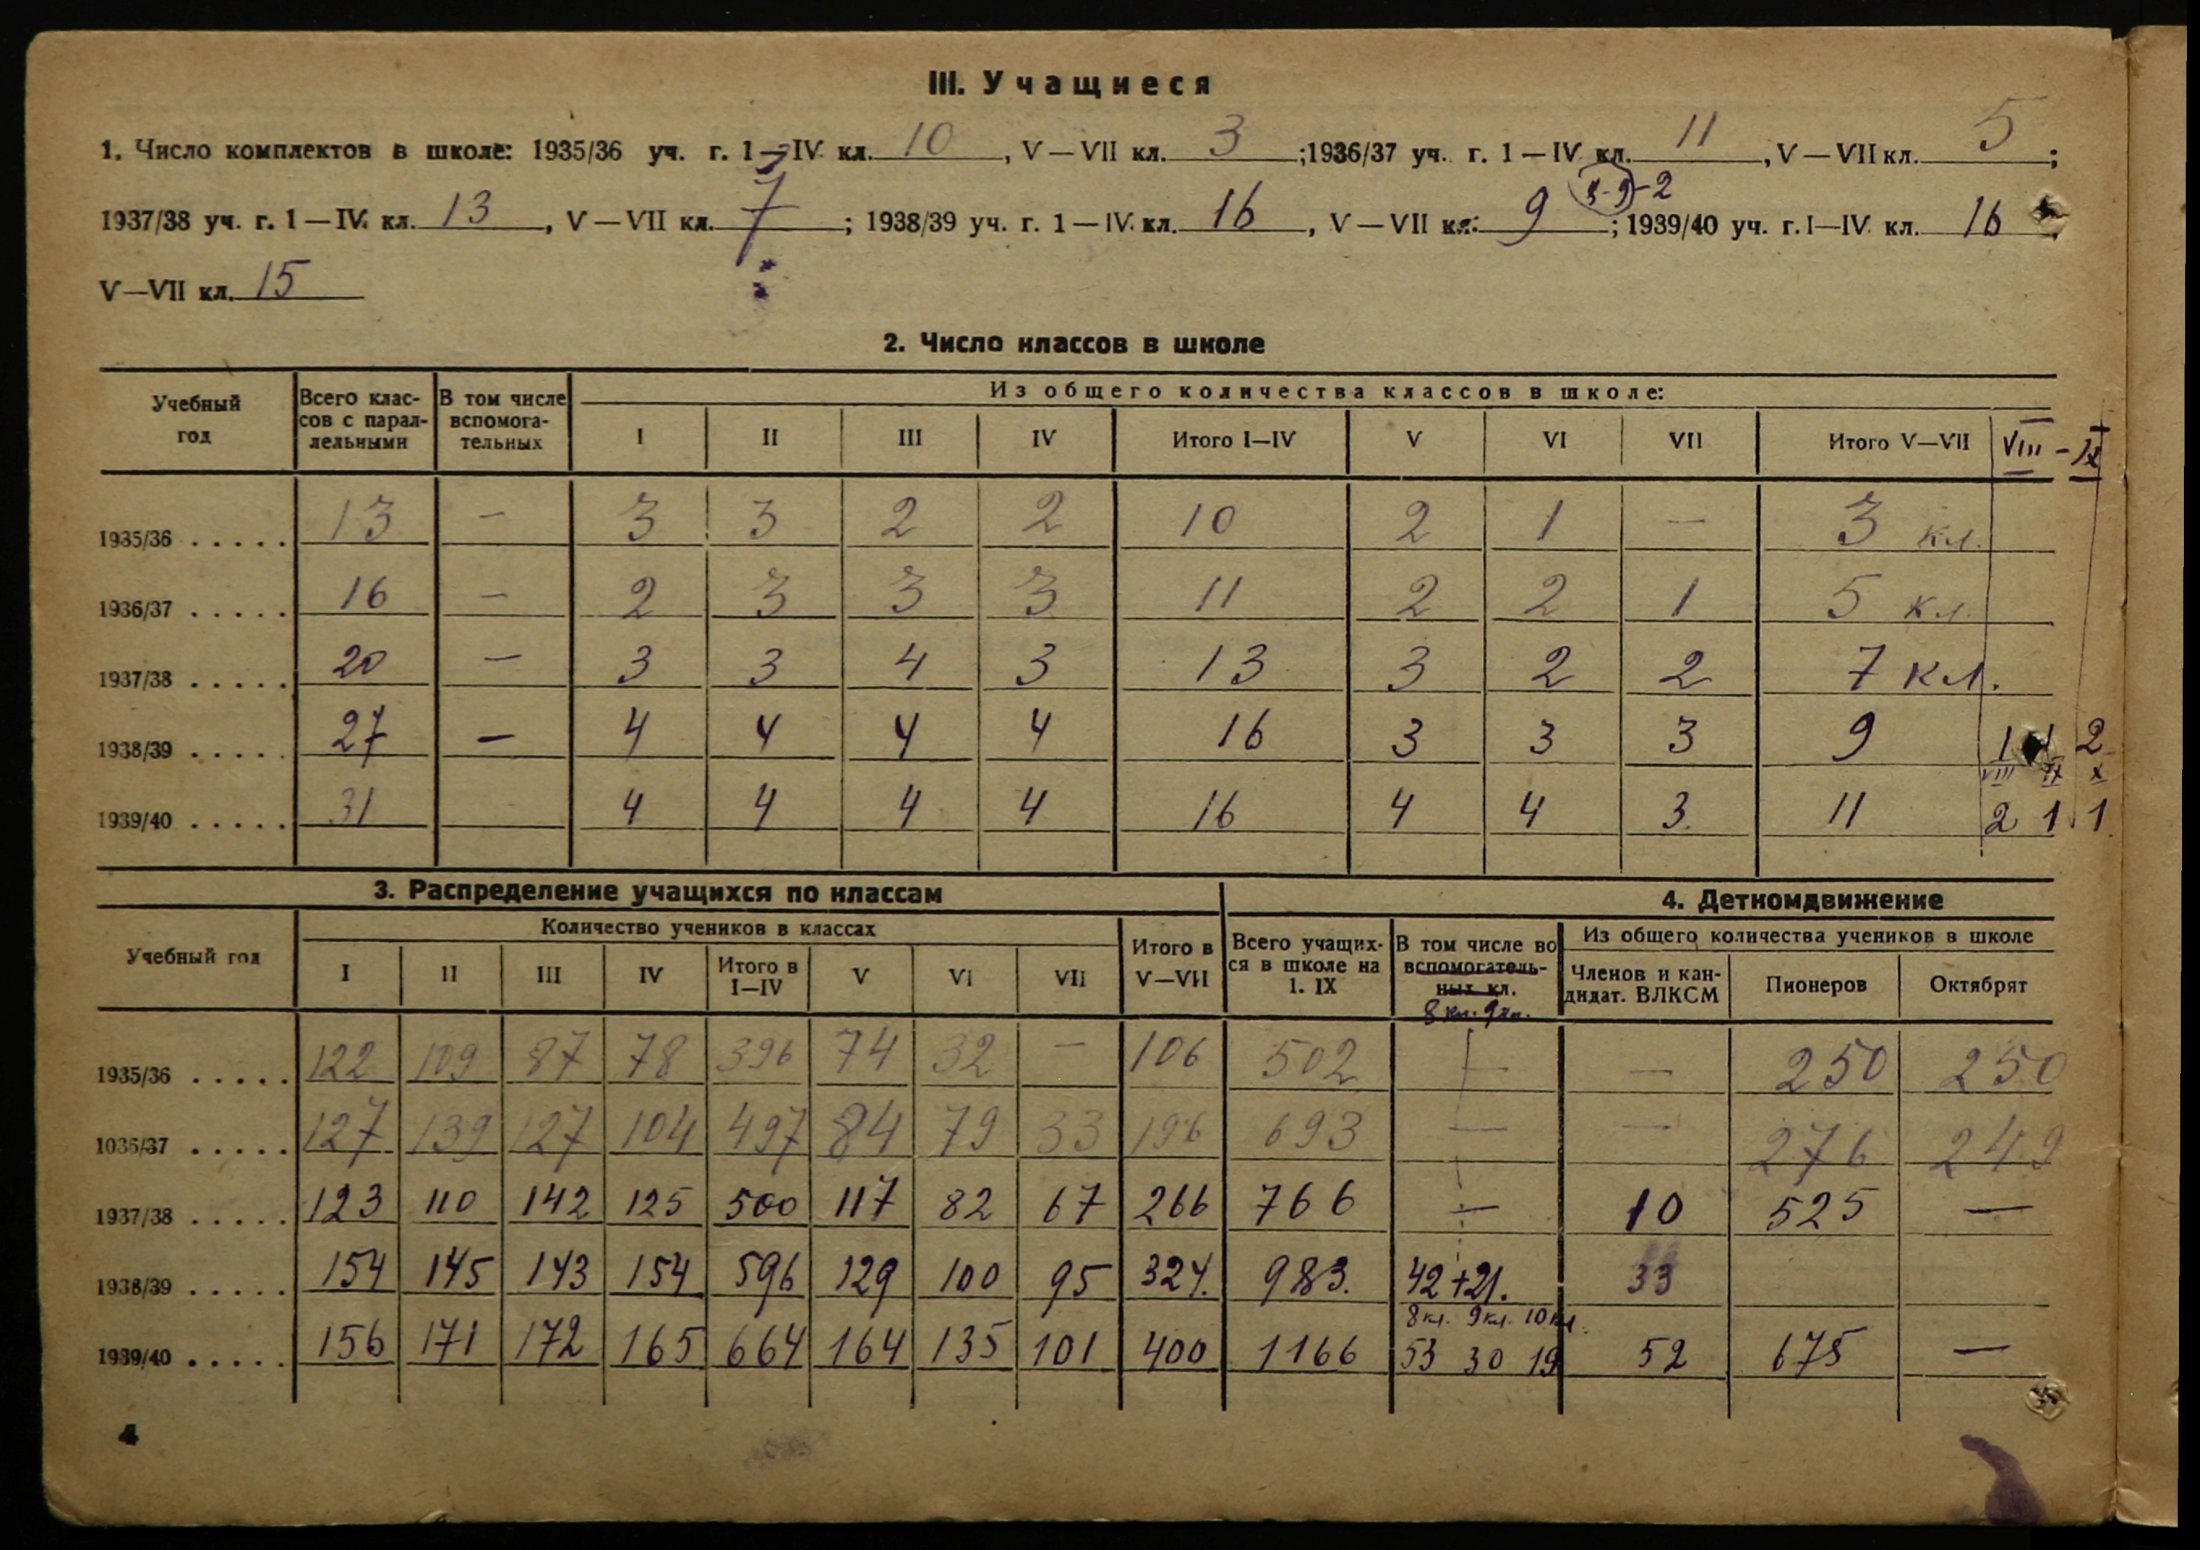 III. Учащиеся
1. Число комплектов в школе: 1935/36 уч. г. 1—IV кл. 10, V—VII кл. 3; 1936/37 уч. г. 1—IV кл. 11, V—VII кл. 5;
8-9-2
1937/38 уч. г. 1—IV кл. 13, V—VII кл. 7; 1938/39 уч. г. 1—IV кл. 16, V—VII кл. 9; 1939/40 уч. г. I—IV кл. 16,
V—VII кл. 15
2. Число классов в школе
Учебный год | Всего классов с параллельными | В том числе вспомогательных | Из общего количества классов в школе:
I | II | III | IV | Итого I—IV | V | VI | VII | Итого V—VII | VIII - IX
1935/36 ..... 13 — 3 3 2 2 10 2 1 — 3 кл.
1936/37 ..... 16 — 2 3 3 3 11 2 2 1 5 кл.
1937/38 ..... 20 — 3 3 4 3 13 3 2 2 7 кл.
1938/39 ..... 27 — 4 4 4 4 16 3 3 3 9 1 1 2
VIII IX X
1939/40 ..... 31 4 4 4 4 16 4 4 3 11 2 1 1
3. Распределение учащихся по классам
4. Деткомдвижение
Учебный год | Количество учеников в классах | Итого в V—VII | Всего учащихся в школе на 1. IX | В том числе во вспомогательных кл. 8 кл. 9 кл. | Из общего количества учеников в школе
I | II | III | IV | Итого в I—IV | V | VI | VII | Членов и кандидат. ВЛКСМ | Пионеров | Октябрят
1935/36 ..... 122 109 87 78 396 74 32 — 106 502 — — 250 250
1036/37 ..... 127 139 127 104 497 84 79 33 196 693 — — 276 249
1937/38 ..... 123 110 142 125 500 117 82 67 266 766 — 10 525 —
1938/39 ..... 154 145 143 154 596 129 100 95 324. 983. 42+21. 33
8 кл. 9 кл. 10 кл.
1939/40 ..... 156 171 172 165 664 164 135 101 400 1166 53 30 19 52 675 —
4